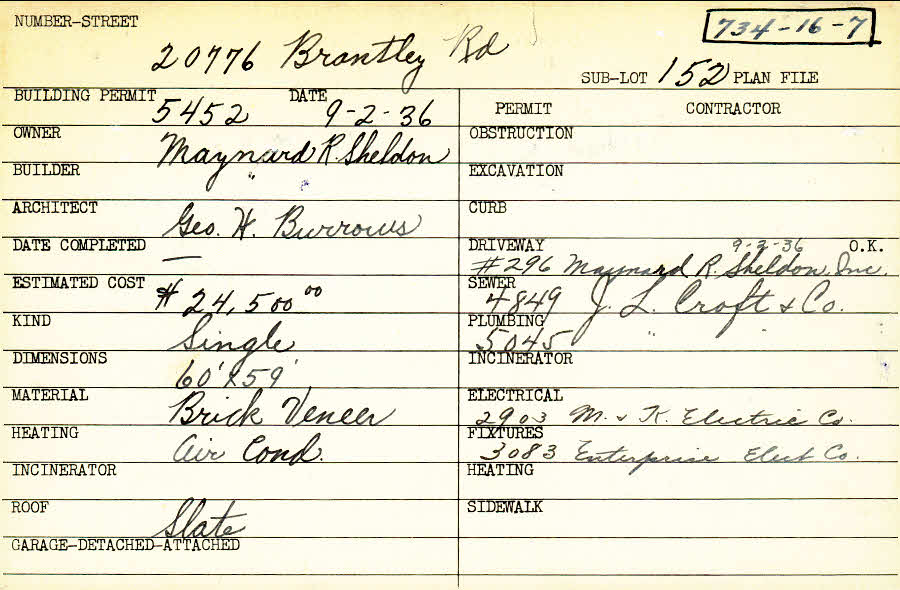 NUMBER-STREET
734-16-7
20776 Brantley Rd
SUB-LOT 152 PLAN FILE
BUILDING PERMIT 5452 DATE 9-2-36
PERMIT CONTRACTOR
OWNER Maynard R. Sheldon
OBSTRUCTION
BUILDER "
EXCAVATION
ARCHITECT Geo. H. Burrows
CURB
DATE COMPLETED —
DRIVEWAY 9-2-36 O.K.
#296 Maynard R. Sheldon, Inc.
ESTIMATED COST $24,500 00
SEWER 4849 J. L. Croft & Co.
KIND Single
PLUMBING 5045 "
DIMENSIONS 60' x 59'
INCINERATOR
MATERIAL Brick Veneer
ELECTRICAL
2903 M. & K. Electric Co.
HEATING Air Cond.
FIXTURES
3083 Enterprise Elect Co.
INCINERATOR
HEATING
ROOF Slate
SIDEWALK
GARAGE-DETACHED-ATTACHED